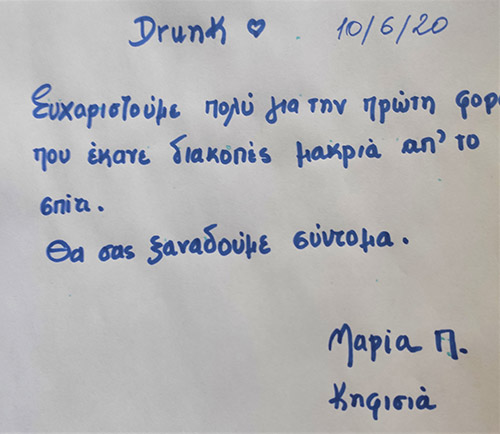 Drunk ♥ 10/6/20
Ευχαριστούμε πολύ για την πρώτη φορά
που έκανε διακοπές μακριά απ' το
σπίτι.
Θα σας ξαναδούμε σύντομα.
Μαρία Π.
Κηφισιά